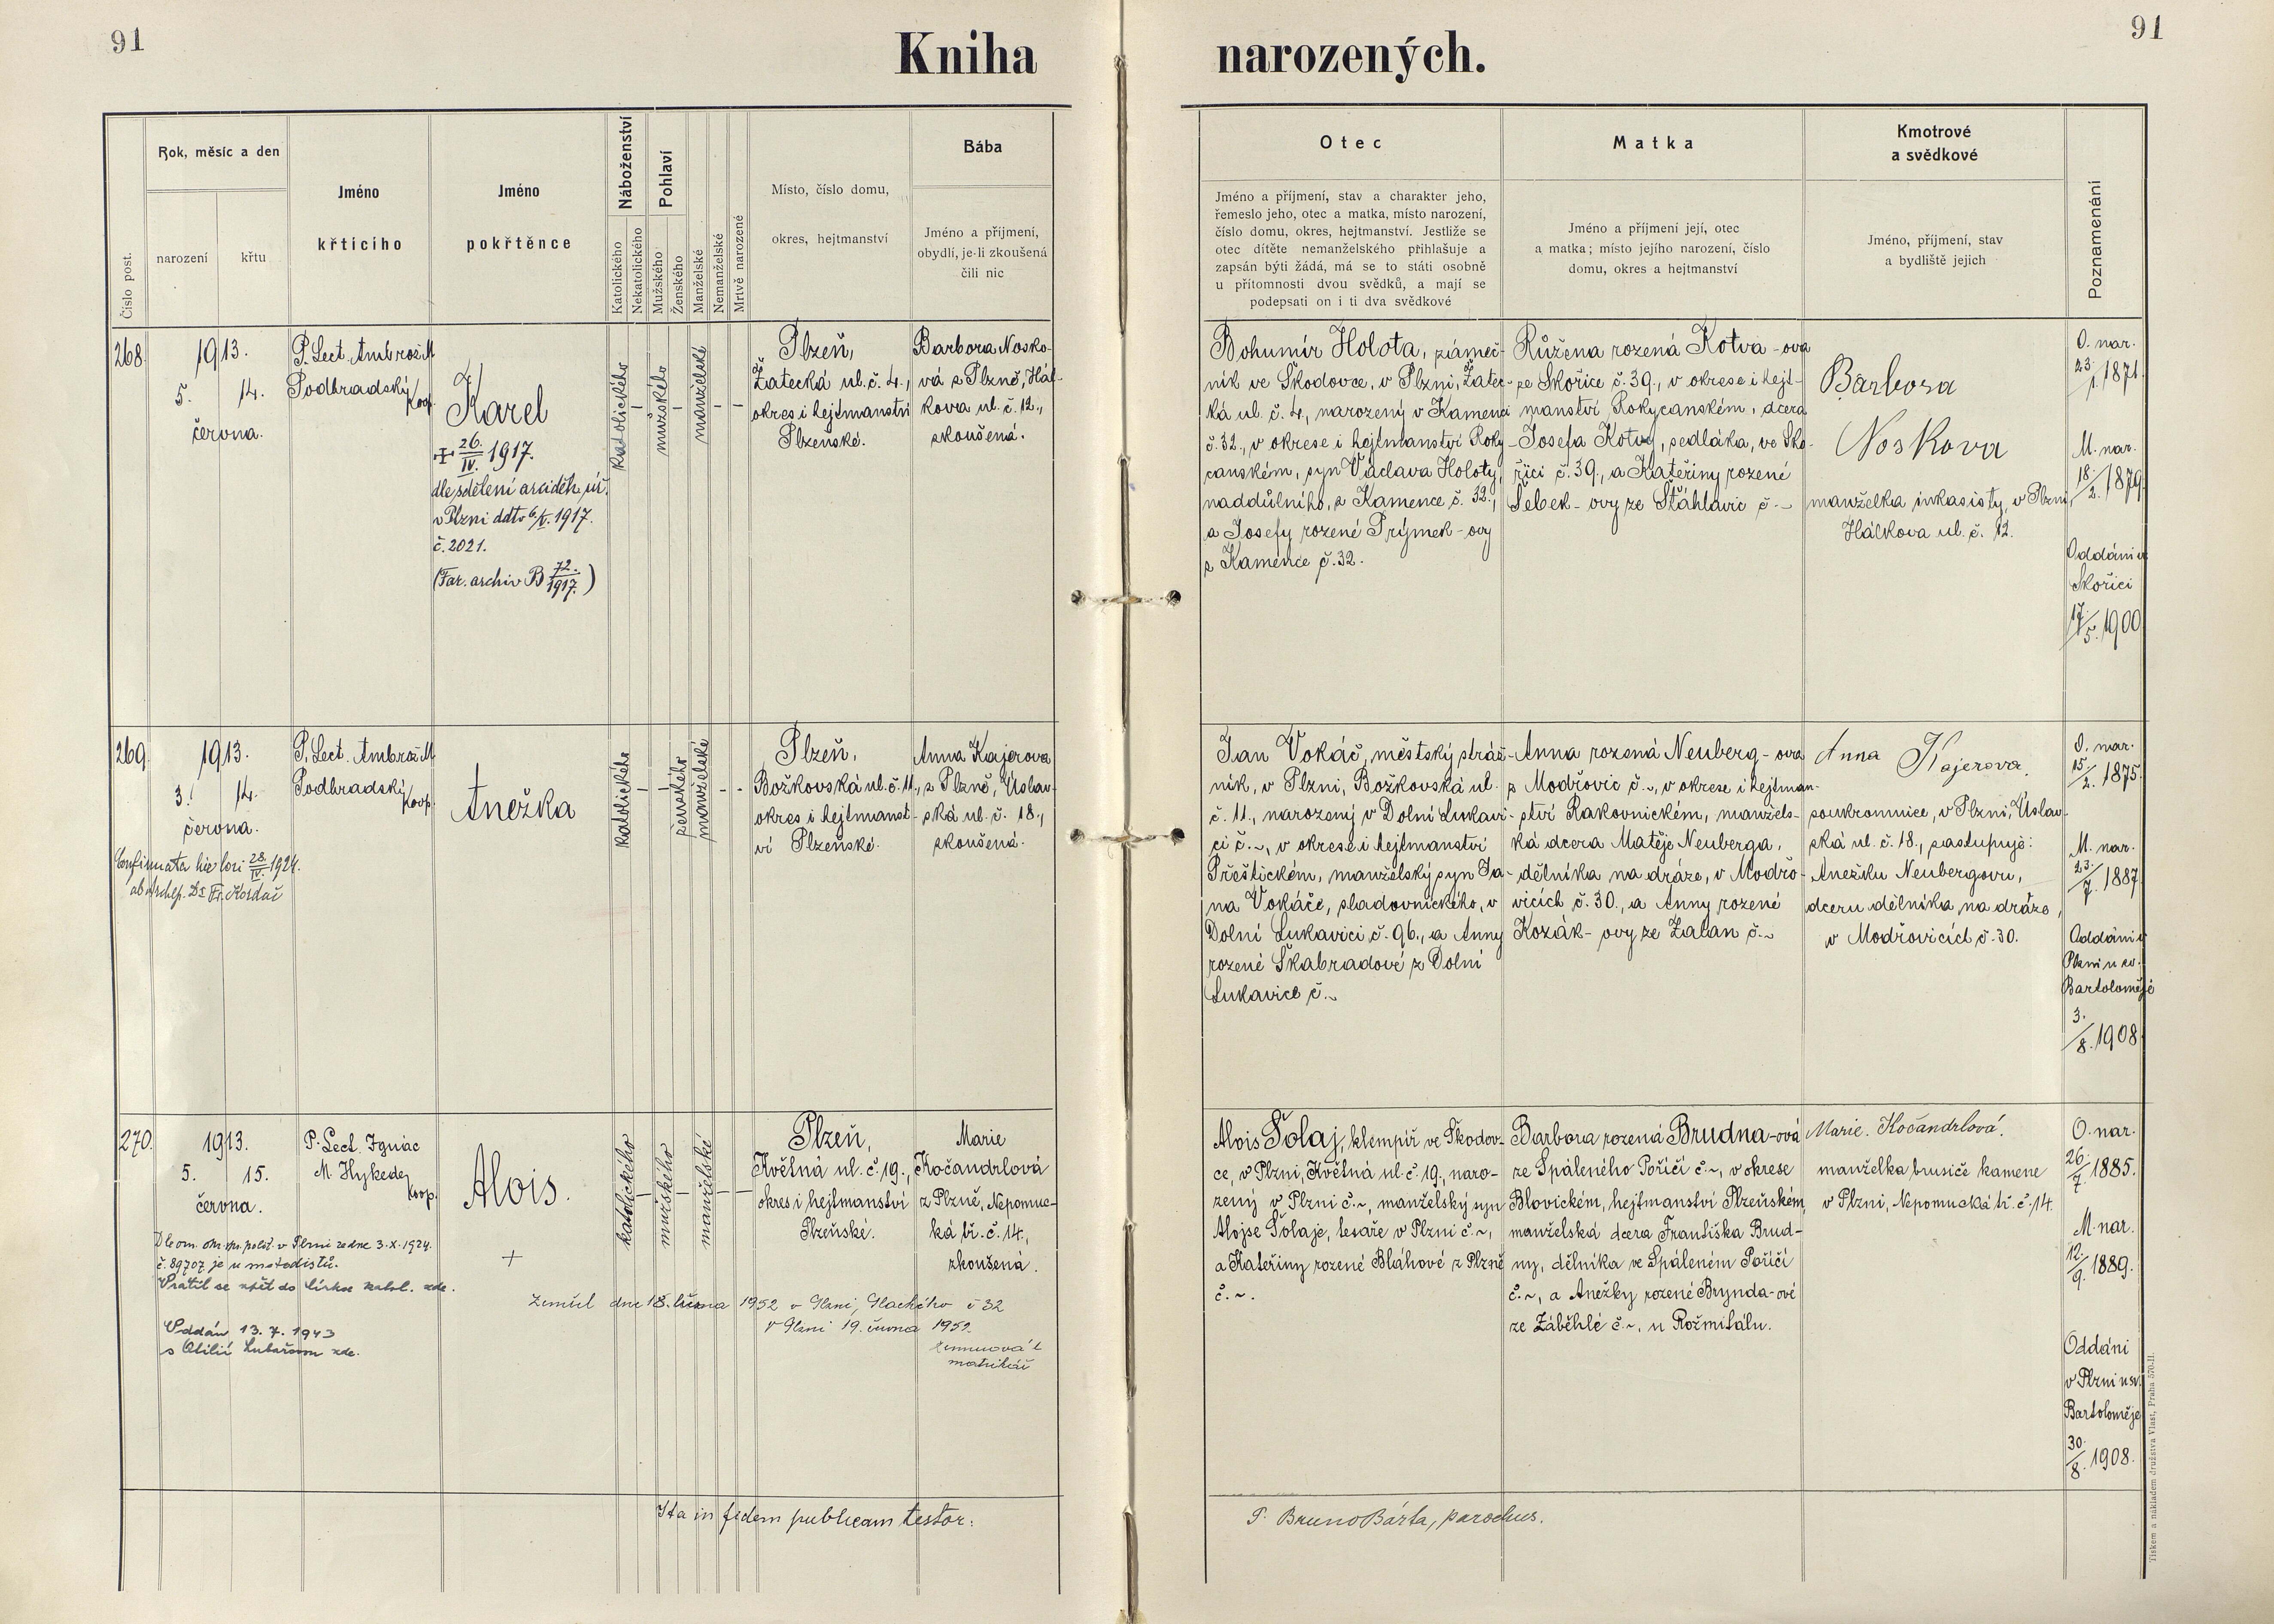 91
Kniha narozených.
91
Číslo post.
Rok, měsíc a den
narození
křtu
Jméno
křtícího
Jméno
pokřtěnce
Náboženství
Katolického
Nekatolického
Pohlaví
Mužského
Ženského
Manželské
Nemanželské
Mrtvě narozené
Místo, číslo domu,
okres, hejtmanství
Bába
Jméno a příjmení,
obydlí, je-li zkoušená
čili nic
Otec
Jméno a příjmení, stav a charakter jeho,
řemeslo jeho, otec a matka, místo narození,
číslo domu, okres, hejtmanství. Jestliže se
otec dítěte nemanželského přihlašuje a
zapsán býti žádá, má se to státi osobně
u přítomnosti dvou svědků, a mají se
podepsati on i ti dva svědkové
Matka
Jméno a příjmení její, otec
a matka; místo jejího narození, číslo
domu, okres a hejtmanství
Kmotrové
a svědkové
Jméno, příjmení, stav
a bydliště jejich
Poznamenání
268.
1913.
5. 14.
června.
P. Lect. Ambrož M.
Podhradský
koop.
Karel
+ 26./IV. 1917.
dle sdělení arciděk. úř.
v Plzni ddto 6/V. 1917.
č. 2021.
(Far. archiv B 72./1917.)
katolického
–
mužského
–
manželské
– –
Plzeň,
Žatecká ul. č. 4.,
okres i hejtmanství
Plzeňské.
Barbora Nosko-
vá z Plzně, Hál-
kova ul. č. 12.,
zkoušená.
Bohumír Holota, zámeč-
ník ve Škodovce, v Plzni, Žatec-
ká ul. č. 4., narozený v Kamenci
č. 32., v okrese i hejtmanství Roky-
canském, syn Václava Holoty,
naddůlního, z Kamence č. 32.,
a Josefy rozené Prýmek-ovy
z Kamence č. 32.
Růžena rozená Kotva-ova
ze Skořice č. 39., v okrese i hejt-
manství Rokycanském, dcera
Josefa Kotvy, sedláka, ve Sko-
řici č. 39., a Kateřiny rozené
Šebek-ovy ze Štáhlavic č. ~
Barbora
Noskova
manželka inkasisty, v Plzni,
Hálkova ul. č. 12.
O. nar.
23./1. 1871.
M. nar.
18./2. 1879.
Oddáni v
Skořici
17./5. 1900.
269.
1913.
3. 14.
června.
Confirmata hic loci 28./IV. 1924.
ab Archep. Dr Fr. Kordač
P. Lect. Ambrož M.
Podhradský
koop.
Anežka
katolického
– –
ženského
manželské
- -
Plzeň,
Božkovská ul. č. 11.,
okres i hejtmanst-
ví Plzeňské.
Anna Kajerova
z Plzně, Úslav-
ská ul. č. 18.,
zkoušená.
Jan Vokáč, městský stráž-
ník, v Plzni, Božkovská ul.
č. 11., narozený v Dolní Lukavi-
ci č. ~, v okrese i hejtmanství
Přeštickém, manželský syn Ja-
na Vokáče, sladovnického, v
Dolní Lukavici č. 96., a Anny
rozené Škabradové z Dolní
Lukavice č. ~
Anna rozená Neuberg-ova
z Modřovic č. ~, v okrese i hejtman-
ství Rakovnickém, manžels-
ká dcera Matěje Neuberga,
dělníka na dráze, v Modřo-
vicích č. 30., a Anny rozené
Kozák-ovy ze Zalan č. ~
Anna Kajerova,
soukromnice, v Plzni, Úslav-
ská ul. č. 18., zastupuje:
Anežku Neubergovu,
dceru dělníka, na dráze,
v Modřovicích č. 30.
O. nar.
15./2. 1875.
M. nar.
23./7. 1887.
Oddáni v
Plzni u sv.
Bartoloměje
3./8. 1908.
270.
1913.
5. 15.
června.
Dle om. okr. spr. polit. v Plzni ze dne 3. X. 1924.
č. 89707 je u metodistů.
Vrátil se zpět do církve katol. zde.
Oddán 13. 7. 1943
s Otilií
zde.
P. Lect. Ignác
M. Hykede
koop.
Alois.
+
katolického
–
mužského
–
manželské
– –
Plzeň,
Květná ul. č. 19.,
okres i hejtmanství
Plzeňské.
Marie
Kočandrlová
z Plzně, Nepomuc-
ká tř. č. 14.,
zkoušená.
Zemřel dne 18. června 1952 v Plzni, Plachého č 32
V Plzni 19. června 1952.
matrikář
Alois Šolaj, klempíř ve Škodov-
ce, v Plzni, Květná ul. č. 19., naro-
zený v Plzni č. ~, manželský syn
Alojse Šolaje, tesaře v Plzni č. ~,
a Kateřiny rozené Bláhové z Plzně
č. ~.
Barbora rozená Brudna-ová
ze Spáleného Poříčí č. ~, v okrese
Blovickém, hejtmanství Plzeňském,
manželská dcera Františka Brud-
ny, dělníka ve Spáleném Poříčí
č. ~, a Anežky rozené Brynda-ové
ze Záběhlé č. ~, u Rožmitálu.
Marie. Kočandrlová.
manželka brusiče kamene
v Plzni, Nepomucká tř. č. 14.
O. nar.
26./7. 1885.
M. nar.
12./9. 1889.
Oddáni
v Plzni u sv.
Bartoloměje
30./8. 1908.
Ita in fidem publicam testor:
P. Bruno Bárta, parochus.
Tiskem a nákladem družstva Vlast, Praha 570-II.